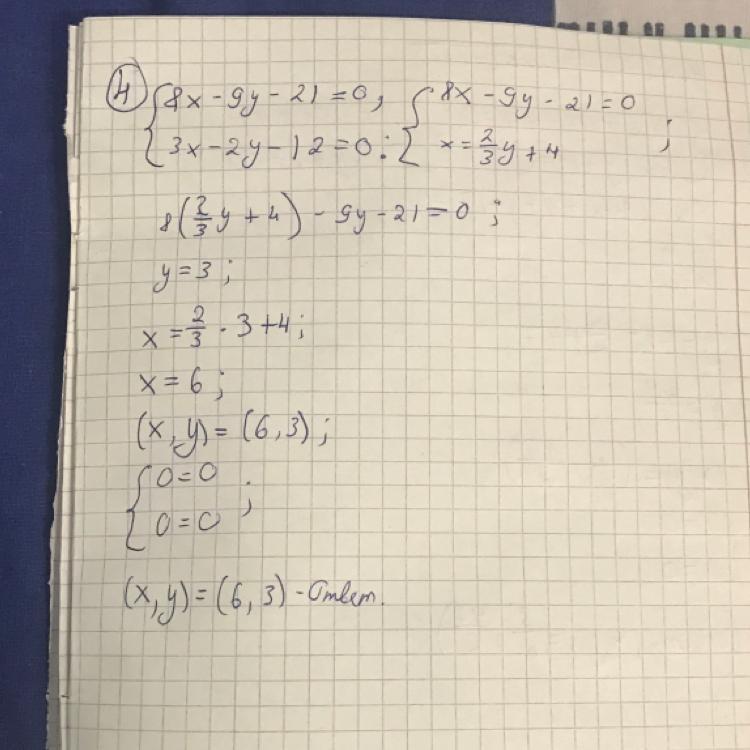 4) { 8x - 9y - 21 = 0, { 8x - 9y - 21 = 0
3x - 2y - 12 = 0 : x = 2/3 y + 4 ;
8(2/3 y + 4) - 9y - 21 = 0 ;
y = 3 ;
x = 2/3 · 3 + 4 ;
x = 6 ;
(x, y) = (6, 3) ;
{ 0 = 0
0 = 0 ;
(x, y) = (6, 3) - Ответ.